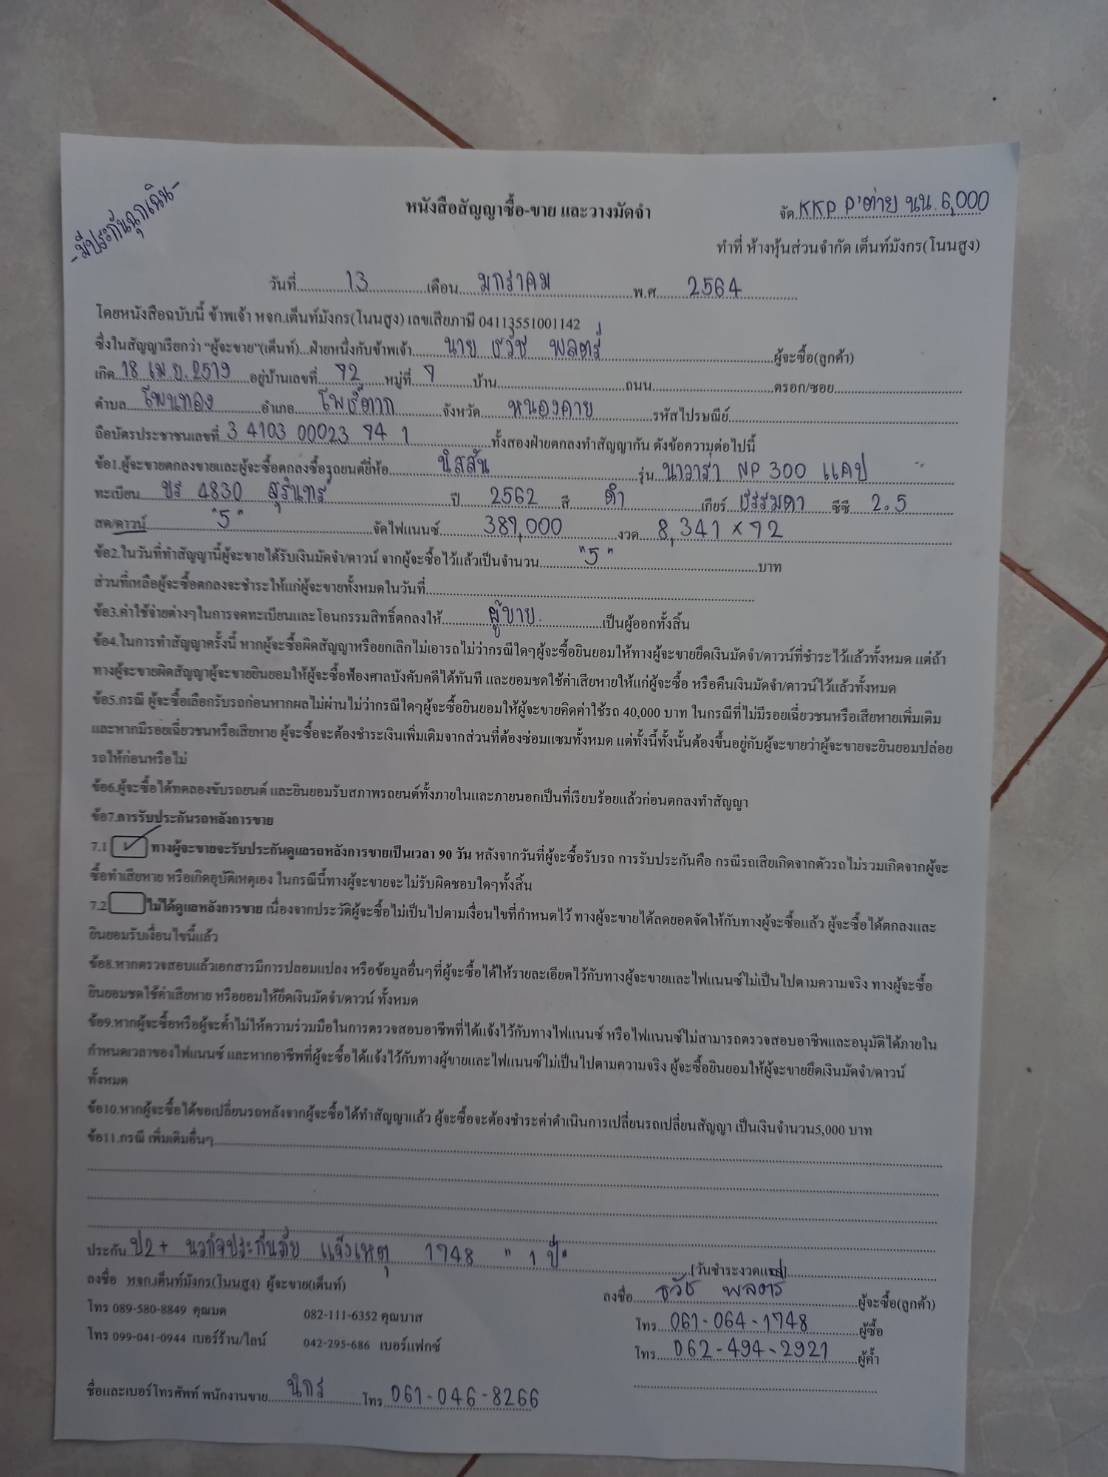 -มีประกันฉุกเฉิน-
หนังสือสัญญาซื้อ-ขาย และวางมัดจำ
จัด KKP P'ต่าย นน. 6,000
ทำที่ ห้างหุ้นส่วนจำกัด เต็นท์มังกร(โนนสูง)
วันที่ 13 เดือน มกราคม พ.ศ 2564
โดยหนังสือฉบับนี้ ข้าพเจ้า หจก.เต็นท์มังกร(โนนสูง) เลขเสียภาษี 04113551001142
ซึ่งในสัญญาเรียกว่า "ผู้จะขาย"(เต็นท์)...ฝ่ายหนึ่งกับข้าพเจ้า นาย ธวัช พลตรี ผู้จะซื้อ(ลูกค้า)
เกิด 18 เม.ย. 2519 อยู่บ้านเลขที่ 92 หมู่ที่ 9 บ้าน ถนน ตรอก/ซอย
ตำบล โพนทอง อำเภอ โพธิ์ตาก จังหวัด หนองคาย รหัสไปรษณีย์
ถือบัตรประชาชนเลขที่ 3 4103 00023 94 1 ทั้งสองฝ่ายตกลงทำสัญญากัน ดังข้อความต่อไปนี้
ข้อ1.ผู้จะขายตกลงขายและผู้จะซื้อตกลงซื้อรถยนต์ยี่ห้อ นิสสัน รุ่น นาวาร่า NP 300 แคป
ทะเบียน 4830 สุรินทร์ ปี 2562 สี ดำ เกียร์ ธรรมดา ซีซี 2.5
สด/ดาวน์ "5" จัดไฟแนนซ์ 389,000 งวด 8,341 x 72
ข้อ2.ในวันที่ทำสัญญานี้ผู้จะขายได้รับเงินมัดจำ/ดาวน์ จากผู้จะซื้อไว้แล้วเป็นจำนวน "5" บาท
ส่วนที่เหลือผู้จะซื้อตกลงจะชำระให้แก่ผู้จะขายทั้งหมดในวันที่
ข้อ3.ค่าใช้จ่ายต่างๆในการจดทะเบียนและโอนกรรมสิทธิ์ตกลงให้ ผู้ขาย เป็นผู้ออกทั้งสิ้น
ข้อ4.ในการทำสัญญาครั้งนี้ หากผู้จะซื้อผิดสัญญาหรือยกเลิกไม่เอารถไม่ว่ากรณีใดๆผู้จะซื้อยินยอมให้ทางผู้จะขายยึดเงินมัดจำ/ดาวน์ที่ชำระไว้แล้วทั้งหมด แต่ถ้า
ทางผู้จะขายผิดสัญญาผู้จะขายยินยอมให้ผู้จะซื้อฟ้องศาลบังคับคดีได้ทันที และยอมชดใช้ค่าเสียหายให้แก่ผู้จะซื้อ หรือคืนเงินมัดจำ/ดาวน์ไว้แล้วทั้งหมด
ข้อ5.กรณี ผู้จะซื้อเลือกรับรถก่อนหากผลไม่ผ่านไม่ว่ากรณีใดๆผู้จะซื้อยินยอมให้ผู้จะขายคิดค่าใช้รถ 40,000 บาท ในกรณีที่ไม่มีรอยเฉี่ยวชนหรือเสียหายเพิ่มเติม
และหากมีรอยเฉี่ยวชนหรือเสียหาย ผู้จะซื้อจะต้องชำระเงินเพิ่มเติมจากส่วนที่ต้องซ่อมแซมทั้งหมด แต่ทั้งนี้ทั้งนั้นต้องขึ้นอยู่กับผู้จะขายว่าผู้จะขายจะยินยอมปล่อย
รถให้ก่อนหรือไม่
ข้อ6.ผู้จะซื้อได้ทดลองขับรถยนต์ และยินยอมรับสภาพรถยนต์ทั้งภายในและภายนอกเป็นที่เรียบร้อยแล้วก่อนตกลงทำสัญญา
ข้อ7.การรับประกันรถหลังการขาย
7.1 ✓ ทางผู้จะขายจะรับประกันดูแลรถหลังการขายเป็นเวลา 90 วัน หลังจากวันที่ผู้จะซื้อรับรถ การรับประกันคือ กรณีรถเสียเกิดจากตัวรถ ไม่รวมเกิดจากผู้จะ
ซื้อทำเสียหาย หรือเกิดอุบัติเหตุเอง ในกรณีนี้ทางผู้จะขายจะไม่รับผิดชอบใดๆทั้งสิ้น
7.2 ไม่ได้ดูแลหลังการขาย เนื่องจากประวัติผู้จะซื้อไม่เป็นไปตามเงื่อนไขที่กำหนดไว้ ทางผู้จะขายได้ลดยอดจัดให้กับทางผู้จะซื้อแล้ว ผู้จะซื้อได้ตกลงและ
ยินยอมรับเงื่อนไขนี้แล้ว
ข้อ8.หากตรวจสอบแล้วเอกสารมีการปลอมแปลง หรือข้อมูลอื่นๆที่ผู้จะซื้อได้ให้รายละเอียดไว้กับทางผู้จะขายและไฟแนนซ์ไม่เป็นไปตามความจริง ทางผู้จะซื้อ
ยินยอมชดใช้ค่าเสียหาย หรือยอมให้ยึดเงินมัดจำ/ดาวน์ ทั้งหมด
ข้อ9.หากผู้จะซื้อหรือผู้จะค้ำไม่ให้ความร่วมมือในการตรวจสอบอาชีพที่ได้แจ้งไว้กับทางไฟแนนซ์ หรือไฟแนนซ์ไม่สามารถตรวจสอบอาชีพและอนุมัติได้ภายใน
กำหนดเวลาของไฟแนนซ์ และหากอาชีพที่ผู้จะซื้อได้แจ้งไว้กับทางผู้ขายและไฟแนนซ์ไม่เป็นไปตามความจริง ผู้จะซื้อยินยอมให้ผู้จะขายยึดเงินมัดจำ/ดาวน์
ทั้งหมด
ข้อ10.หากผู้จะซื้อได้ขอเปลี่ยนรถหลังจากผู้จะซื้อได้ทำสัญญาแล้ว ผู้จะซื้อจะต้องชำระค่าดำเนินการเปลี่ยนรถเปลี่ยนสัญญา เป็นเงินจำนวน5,000 บาท
ข้อ11.กรณี เพิ่มเติมอื่นๆ
ประกัน ป2+ นวกิจประกันภัย แจ้งเหตุ 1748 "1 ปี" (วันชำระงวดแรก)
ลงชื่อ หจก.เต็นท์มังกร(โนนสูง) ผู้จะขาย(เต็นท์)
ลงชื่อ ธวัช พลตรี ผู้จะซื้อ(ลูกค้า)
โทร 089-580-8849 คุณมด 082-111-6352 คุณบาส
โทร 061-064-1748 ผู้ซื้อ
โทร 099-041-0944 เบอร์ร้าน/ไลน์ 042-295-686 เบอร์แฟกซ์
โทร 062-494-2921 ผู้ค้ำ
ชื่อและเบอร์โทรศัพท์ พนักงานขาย นิกร โทร 061-046-8266